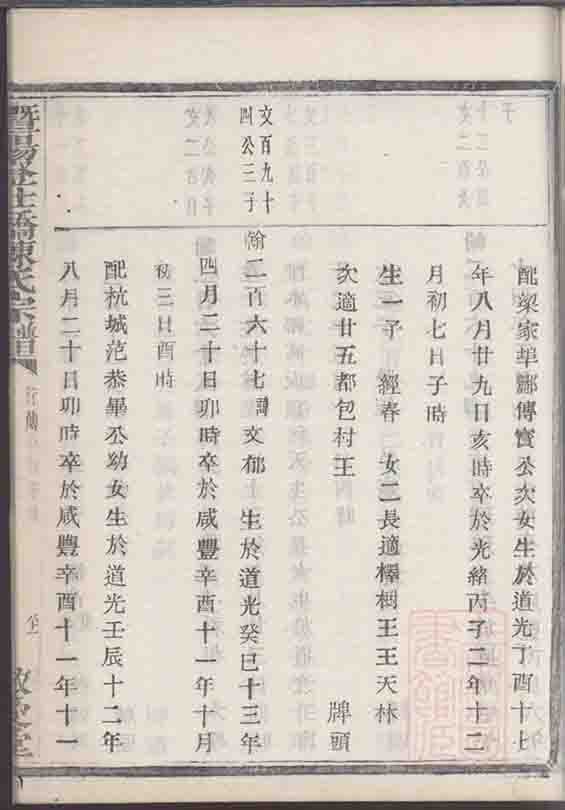 配梁家埠鄭傳寶公次女生於道光丁酉十七
年八月廿九日亥時卒於光緒丙子二年十二
月初七日子時
生一子 經春 女二長適檡樹王王天林
次適廿五都包村王 牌頭
文百九十
四公三子
二百六十七諱文郁 生於道光癸巳十三年
四月二十日卯時卒於咸豐辛酉十一年十月
初三日酉時
配杭城范恭畢公幼女生於道光壬辰十二年
八月二十日卯時卒於咸豐辛酉十一年十一
暨陽 陳氏宗譜